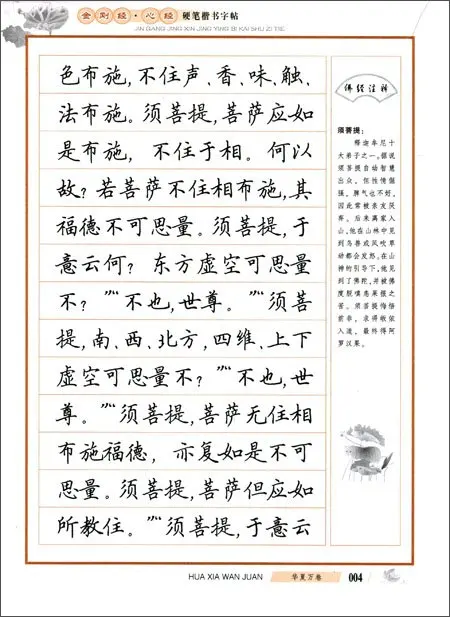 金刚经·心经 硬笔楷书字帖
JIN GANG JING XIN JING YING BI KAI SHU ZI TIE
色布施,不住声、香、味、触、
法布施。须菩提,菩萨应如
是布施, 不住于相。何以
故?若菩萨不住相布施,其
福德不可思量。须菩提,于
意云何? 东方虚空可思量
不?”“不也,世尊。”“须菩
提,南、西、北方,四维、上下
虚空可思量不?”“不也,世
尊。”“须菩提,菩萨无住相
布施福德, 亦复如是不可
思量。须菩提,菩萨但应如
所教住。”“须菩提,于意云
佛经注释
须菩提:
释迦牟尼十
大弟子之一。据说
须菩提自幼智慧
出众, 但性情倔
强, 脾气也不好,
因此常被亲友厌
弃。后来离家入
山,他在山林中见
到鸟兽或风吹草
动都会发怒。在山
神的引导下,他见
到了佛陀,并被佛
度脱嗔恚果报之
苦。须菩提悔悟
前非, 求得皈依
入道, 最终得阿
罗汉果。
HUA XIA WAN JUAN 华夏万卷 004